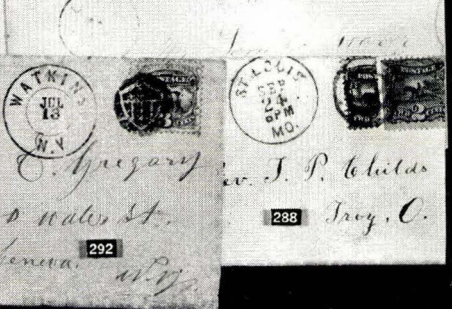 WATKINS
JUL
13
N.Y
C. Gregary
Water St.
Geneva.
N.Y.
292
ST. LOUIS
SEP
24
PM
MO.
POSTAGE
Rev. J. P. Childs
288
Troy, O.